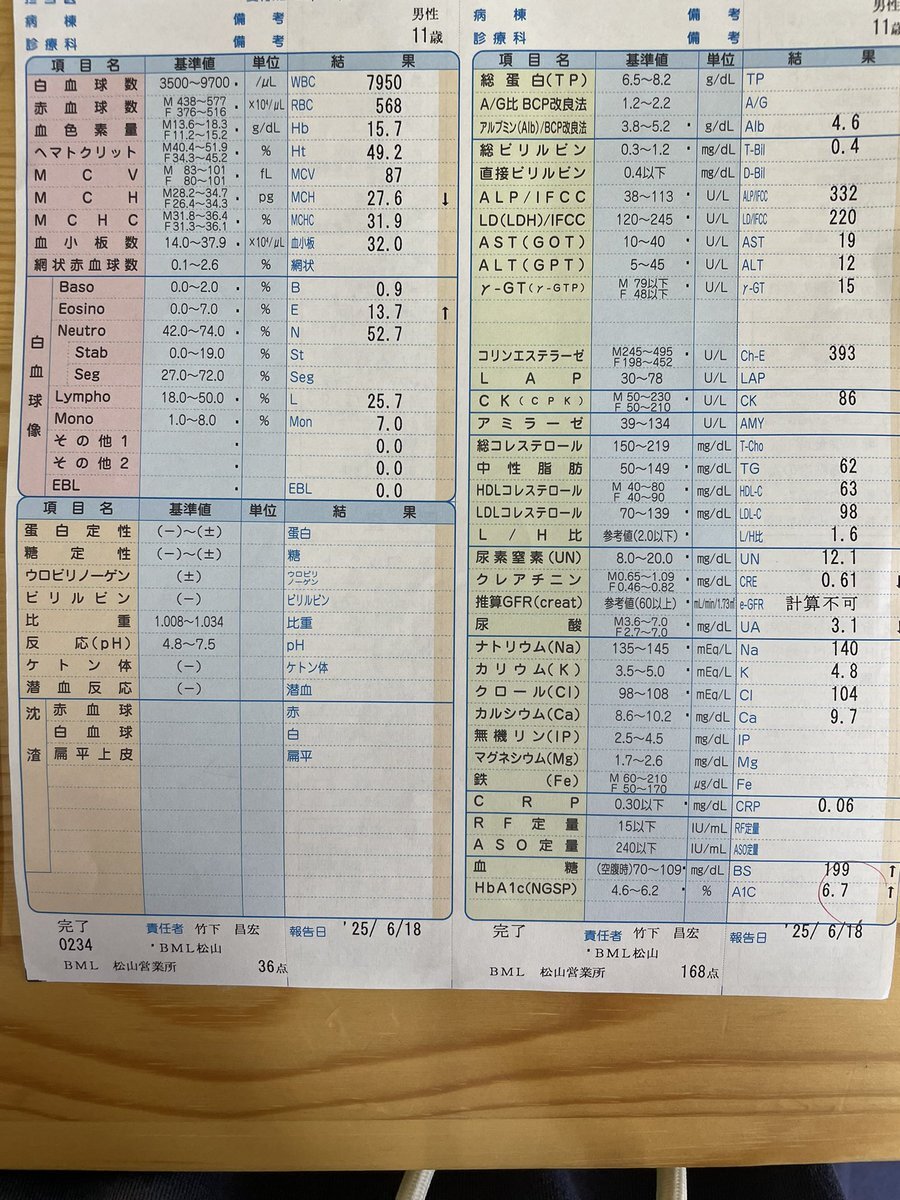 病棟 備考 男性
診療科 備考 11歳
項目名 基準値 単位 結果
白血球数 3500～9700 /μL WBC 7950
赤血球数 M 438～577 F 376～516 ×10⁴/μL RBC 568
血色素量 M13.6～18.3 F11.2～15.2 g/dL Hb 15.7
ヘマトクリット M40.4～51.9 F34.3～45.2 % Ht 49.2
MCV M 83～101 F 80～101 fL MCV 87
MCH M28.2～34.7 F26.4～34.3 pg MCH 27.6 ↓
MCHC M31.8～36.4 F31.3～36.1 % MCHC 31.9
血小板数 14.0～37.9 ×10⁴/μL 血小板 32.0
網状赤血球数 0.1～2.6 % 網状
白血球像
Baso 0.0～2.0 % B 0.9
Eosino 0.0～7.0 % E 13.7 ↑
Neutro 42.0～74.0 % N 52.7
Stab 0.0～19.0 % St
Seg 27.0～72.0 % Seg
Lympho 18.0～50.0 % L 25.7
Mono 1.0～8.0 % Mon 7.0
その他1 0.0
その他2 0.0
EBL EBL 0.0
項目名 基準値 単位 結果
蛋白定性 (－)～(±) 蛋白
糖定性 (－)～(±) 糖
ウロビリノーゲン (±) ウロビリノーゲン
ビリルビン (－) ビリルビン
比重 1.008～1.034 比重
反応(pH) 4.8～7.5 pH
ケトン体 (－) ケトン体
潜血反応 (－) 潜血
沈渣
赤血球 赤
白血球 白
扁平上皮 扁平
完了 責任者 竹下 昌宏 報告日 '25/ 6/18
0234 ・BML松山
BML 松山営業所 36点
病棟 備考 男性
診療科 備考 11歳
項目名 基準値 単位 結果
総蛋白(TP) 6.5～8.2 g/dL TP
A/G比 BCP改良法 1.2～2.2 A/G
アルブミン(Alb)/BCP改良法 3.8～5.2 g/dL Alb 4.6
総ビリルビン 0.3～1.2 mg/dL T-Bil 0.4
直接ビリルビン 0.4以下 mg/dL D-Bil
ALP/IFCC 38～113 U/L ALP/IFCC 332
LD(LDH)/IFCC 120～245 U/L LD/IFCC 220
AST(GOT) 10～40 U/L AST 19
ALT(GPT) 5～45 U/L ALT 12
γ-GT(γ-GTP) M 79以下 F 48以下 U/L γ-GT 15
コリンエステラーゼ M245～495 F198～452 U/L Ch-E 393
LAP 30～78 U/L LAP
CK(CPK) M 50～230 F 50～210 U/L CK 86
アミラーゼ 39～134 U/L AMY
総コレステロール 150～219 mg/dL T-Cho
中性脂肪 50～149 mg/dL TG 62
HDLコレステロール M 40～80 F 40～90 mg/dL HDL-C 63
LDLコレステロール 70～139 mg/dL LDL-C 98
L/H比 参考値(2.0以下) L/H比 1.6
尿素窒素(UN) 8.0～20.0 mg/dL UN 12.1
クレアチニン M0.65～1.09 F0.46～0.82 mg/dL CRE 0.61 ↓
推算GFR(creat) 参考値(60以上) mL/min/1.73㎡ e-GFR 計算不可
尿酸 M3.6～7.0 F2.7～7.0 mg/dL UA 3.1 ↓
ナトリウム(Na) 135～145 mEq/L Na 140
カリウム(K) 3.5～5.0 mEq/L K 4.8
クロール(Cl) 98～108 mEq/L Cl 104
カルシウム(Ca) 8.6～10.2 mg/dL Ca 9.7
無機リン(IP) 2.5～4.5 mg/dL IP
マグネシウム(Mg) 1.7～2.6 mg/dL Mg
鉄(Fe) M 60～210 F 50～170 μg/dL Fe
CRP 0.30以下 mg/dL CRP 0.06
RF定量 15以下 IU/mL RF定量
ASO定量 240以下 IU/mL ASO定量
血糖 (空腹時)70～109 mg/dL BS 199 ↑
HbA1c(NGSP) 4.6～6.2 % A1C 6.7 ↑
完了 責任者 竹下 昌宏 報告日 '25/ 6/18
・BML松山
BML 松山営業所 168点